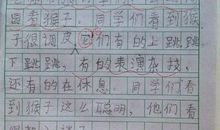 着猴子。同学们看到猴
子很调皮，它们有的上跳跳
下跳跳，有的表演杂技，
还有的在休息。同学们看
到猴子这么聪明，他们看